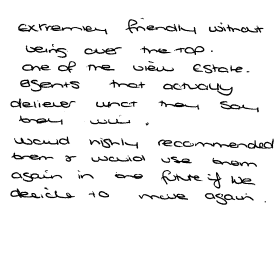 extremely friendly without
being over the TOP.
one of the view Estate.
agents that actually
deliever what they say
they will.
would highly recommended
them & would use them
again in the future if we
decide to move again.